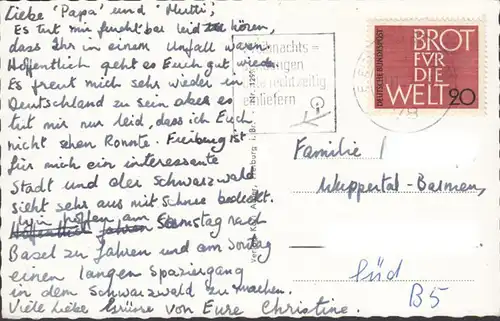 Liebe 'Papa' und 'Mutti',
Es tut mir furchtbar leid zu hören,
dass Ihr in einem Unfall waren.
Hoffentlich geht es Euch gut wieder.
Es freut mich sehr wieder in
Deutschland zu sein aber es
tut mir nur leid, dass ich Euch
nicht sehen konnte. Freiburg ist
für mich ein interessante
Stadt und der Schwarzwald
sieht sehr aus mit Schnee bedeckt.
Wir hoffen am
Hoffentlich fahren Samstag nach
Basel zu fahren und am Sontag
einen langen Spaziergang
in dem Schwarzwald zu machen.
Viele Liebe Grüsse von Eure Christine.
nachts=
ngen
rechtzeitig
einliefern
DEUTSCHE BUNDESPOST
BROT
FÜR
DIE
WELT 20
Freiburg i. Br.
Familie
Wuppertal-Barmen,
Süd
B5